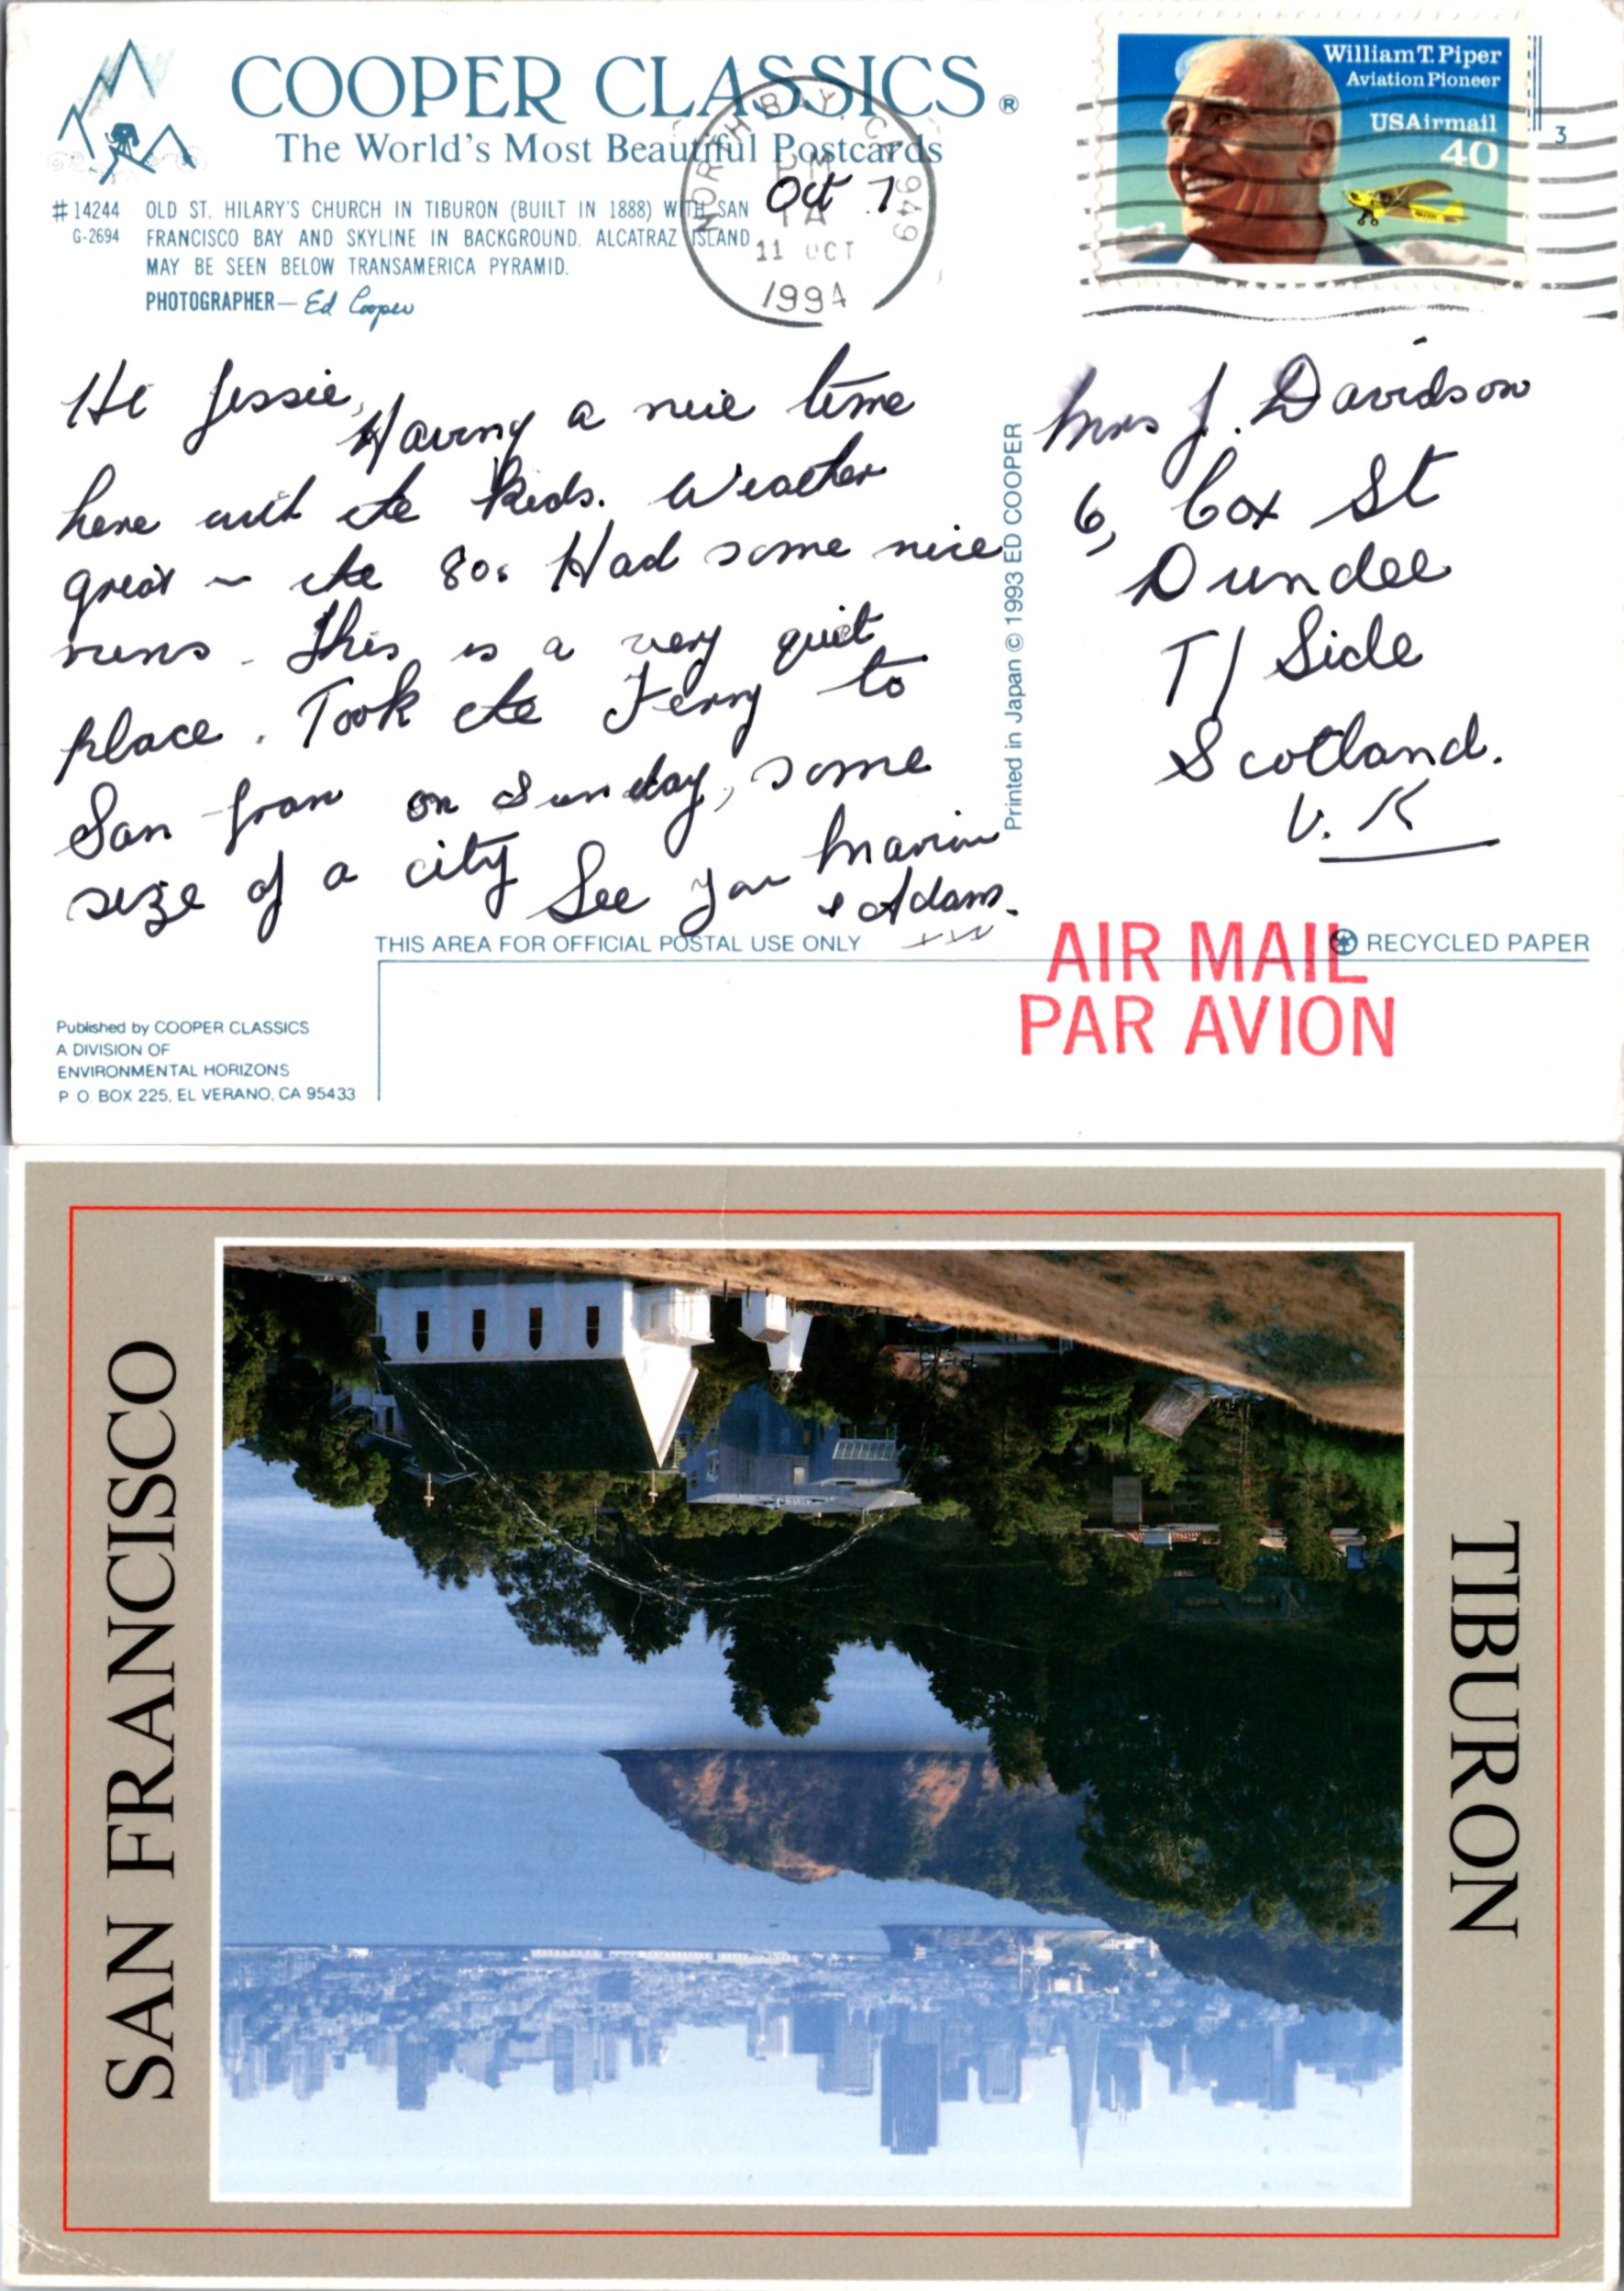 COOPER CLASSICS®
The World's Most Beautiful Postcards
#14244 OLD ST. HILARY'S CHURCH IN TIBURON (BUILT IN 1888) WITH SAN
G-2694 FRANCISCO BAY AND SKYLINE IN BACKGROUND. ALCATRAZ ISLAND
MAY BE SEEN BELOW TRANSAMERICA PYRAMID.
PHOTOGRAPHER— Ed Cooper
NORTH BAY, CA 949
PM
Oct 7
1A
11 OCT
1994
William T. Piper
Aviation Pioneer
USAirmail
40
3
Hi Jessie,
Having a nice time
here with the kids. Weather
great ~ the 80s Had some nice
runs. This is a very quiet
place. Took the Ferry to
San Fran on Sunday, some
size of a city See you Marion
& Adam.
Printed in Japan © 1993 ED COOPER
Mrs J. Davidson
6, Cox St
Dundee
T/Side
Scotland.
U.K
THIS AREA FOR OFFICIAL POSTAL USE ONLY
RECYCLED PAPER
AIR MAIL
PAR AVION
Published by COOPER CLASSICS
A DIVISION OF
ENVIRONMENTAL HORIZONS
P.O. BOX 225, EL VERANO, CA 95433
SAN FRANCISCO
TIBURON